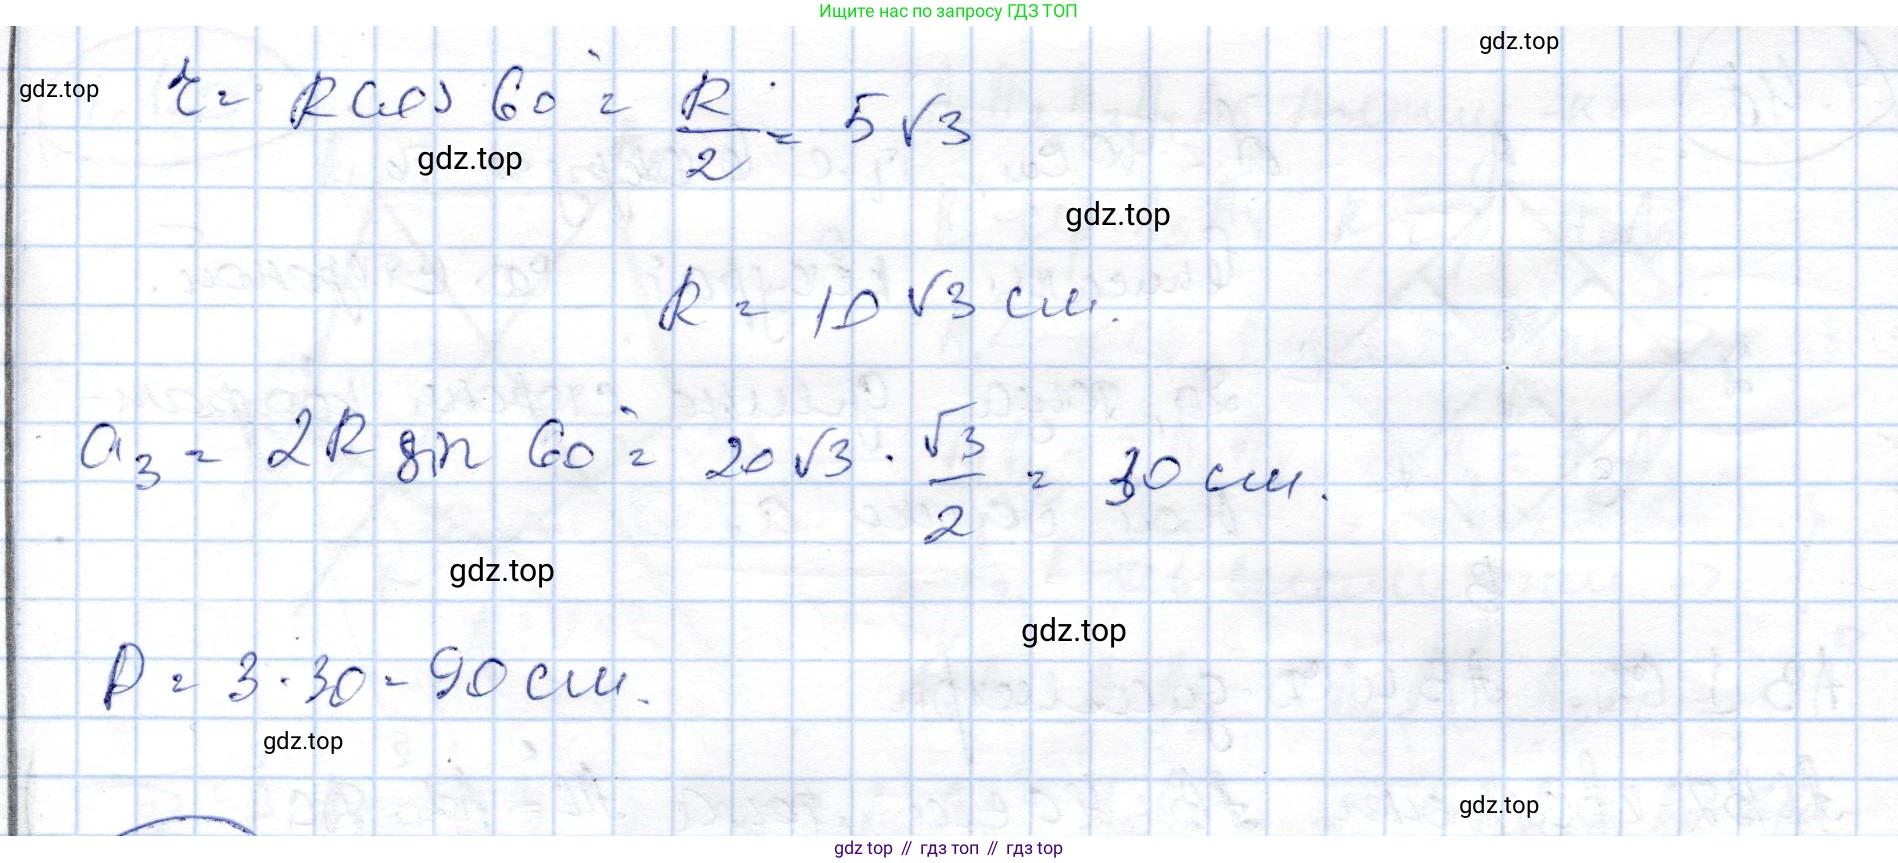 Ищите нас по запросу ГДЗ ТОП
gdz.top
gdz.top
r = R cos 60° = R/2 = 5√3
gdz.top
gdz.top
R = 10√3 см.
a₃ = 2R sin 60° = 20√3 · √3/2 = 30 см.
gdz.top
gdz.top
P = 3 · 30 = 90 см.
gdz.top
gdz.top
gdz top // гдз топ // гдз top